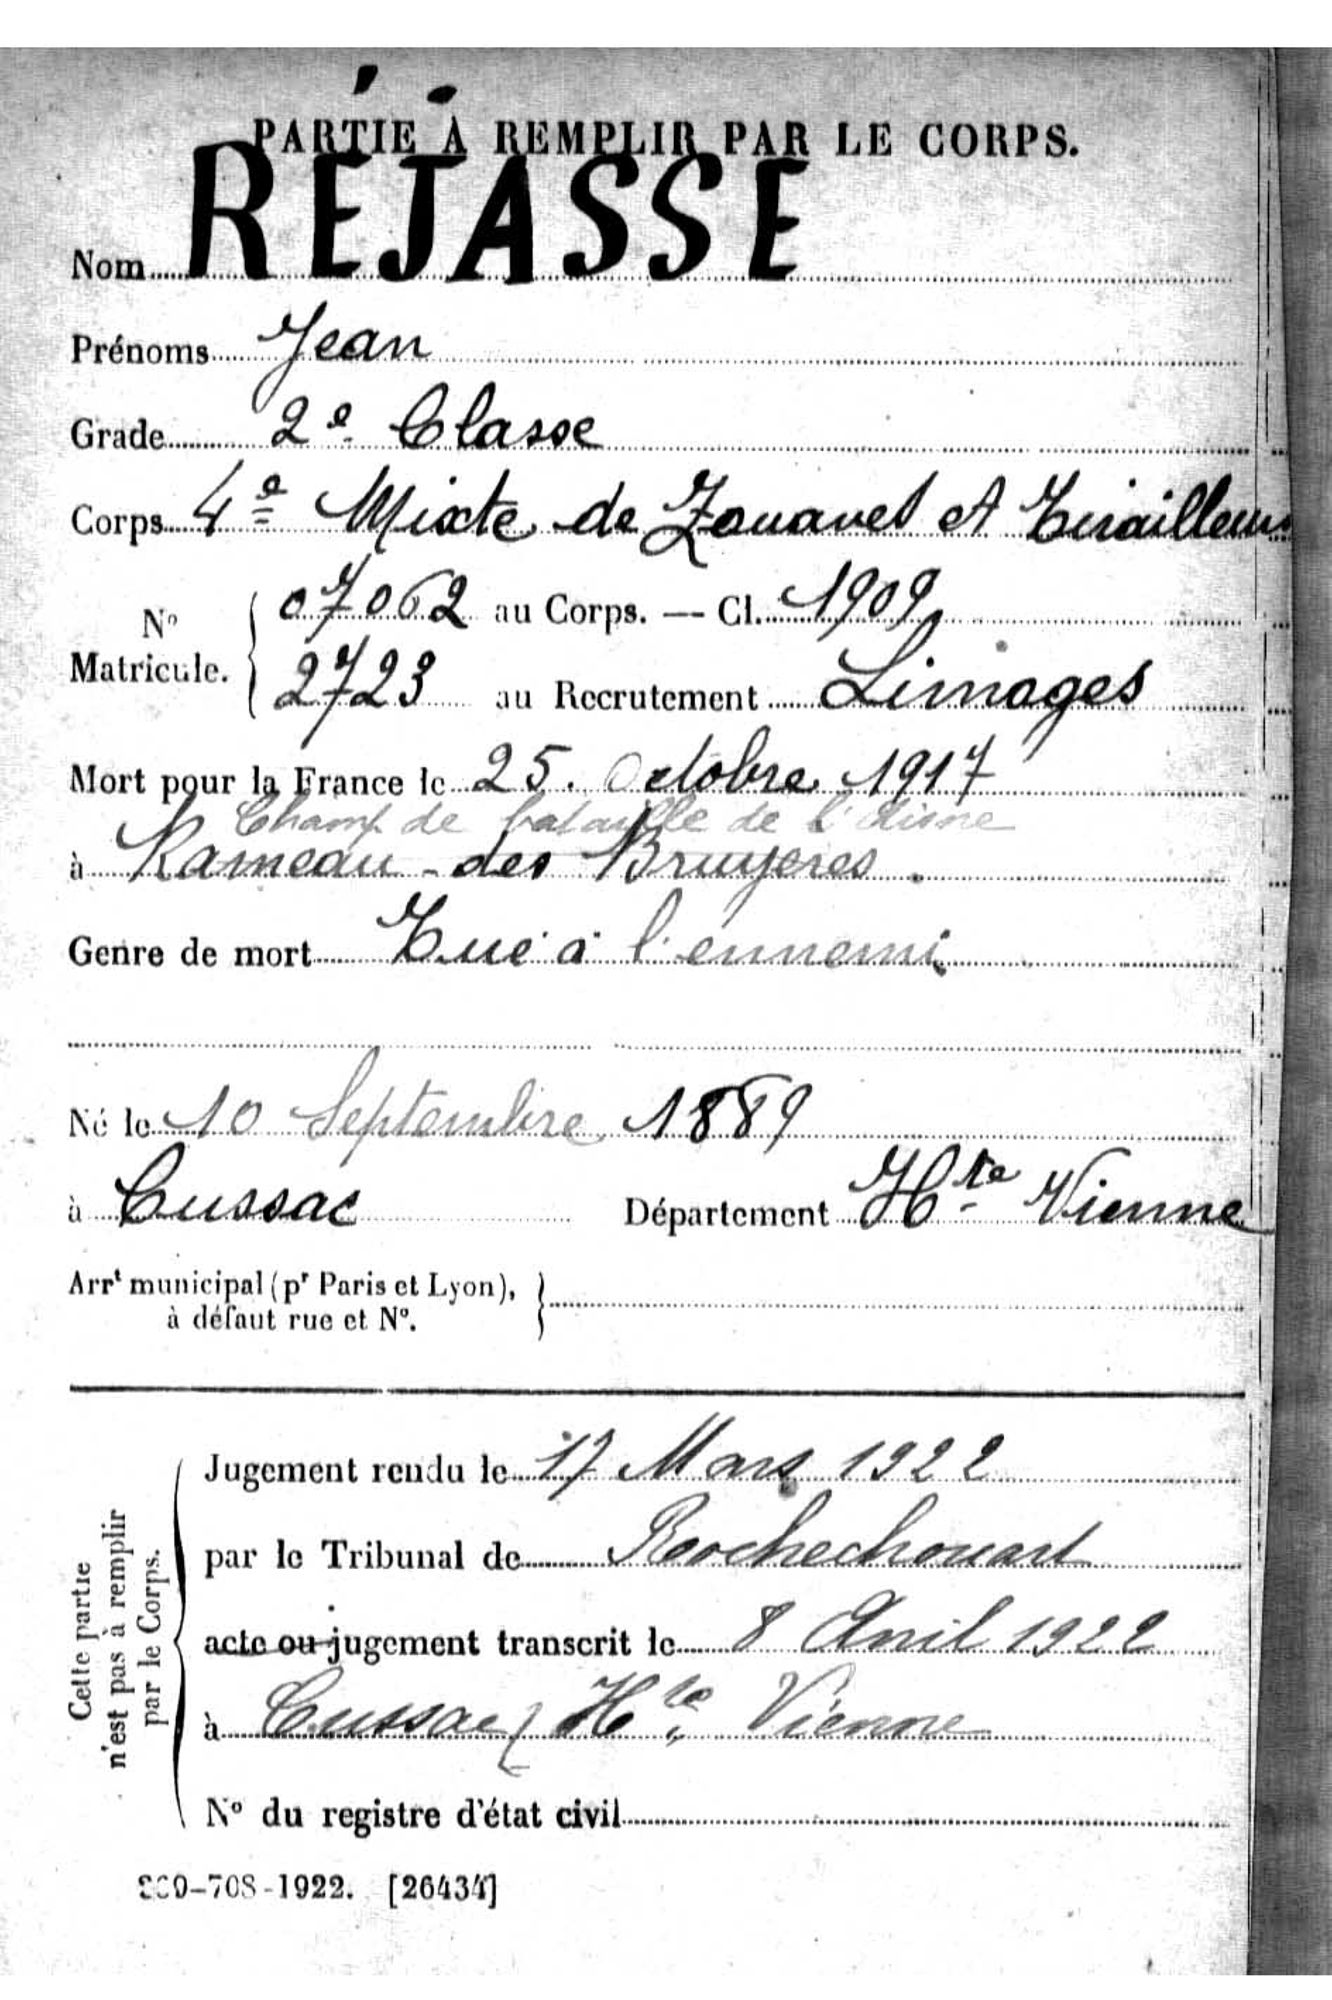 PARTIE À REMPLIR PAR LE CORPS.
Nom RÉJASSE
Prénoms Jean
Grade 2e Classe
Corps 4e Mixte de Zouaves et Tirailleurs
No Matricule. 07062 au Corps. — Cl. 1909
2723 au Recrutement Limoges
Mort pour la France le 25 Octobre 1917
Champ de bataille de l'Aisne
à Rameau des Bruyeres.
Genre de mort Tué à l'ennemi
Né le 10 Septembre 1889
à Cussac Département Hte Vienne
Arrt municipal (pr Paris et Lyon),
à défaut rue et No.
Cette partie
n'est pas à remplir
par le Corps.
Jugement rendu le 17 Mars 1922
par le Tribunal de Rochechouart
acte ou jugement transcrit le 8 Avril 1922
à Cussac (Hte Vienne
No du registre d'état civil
-708-1922. [26434]